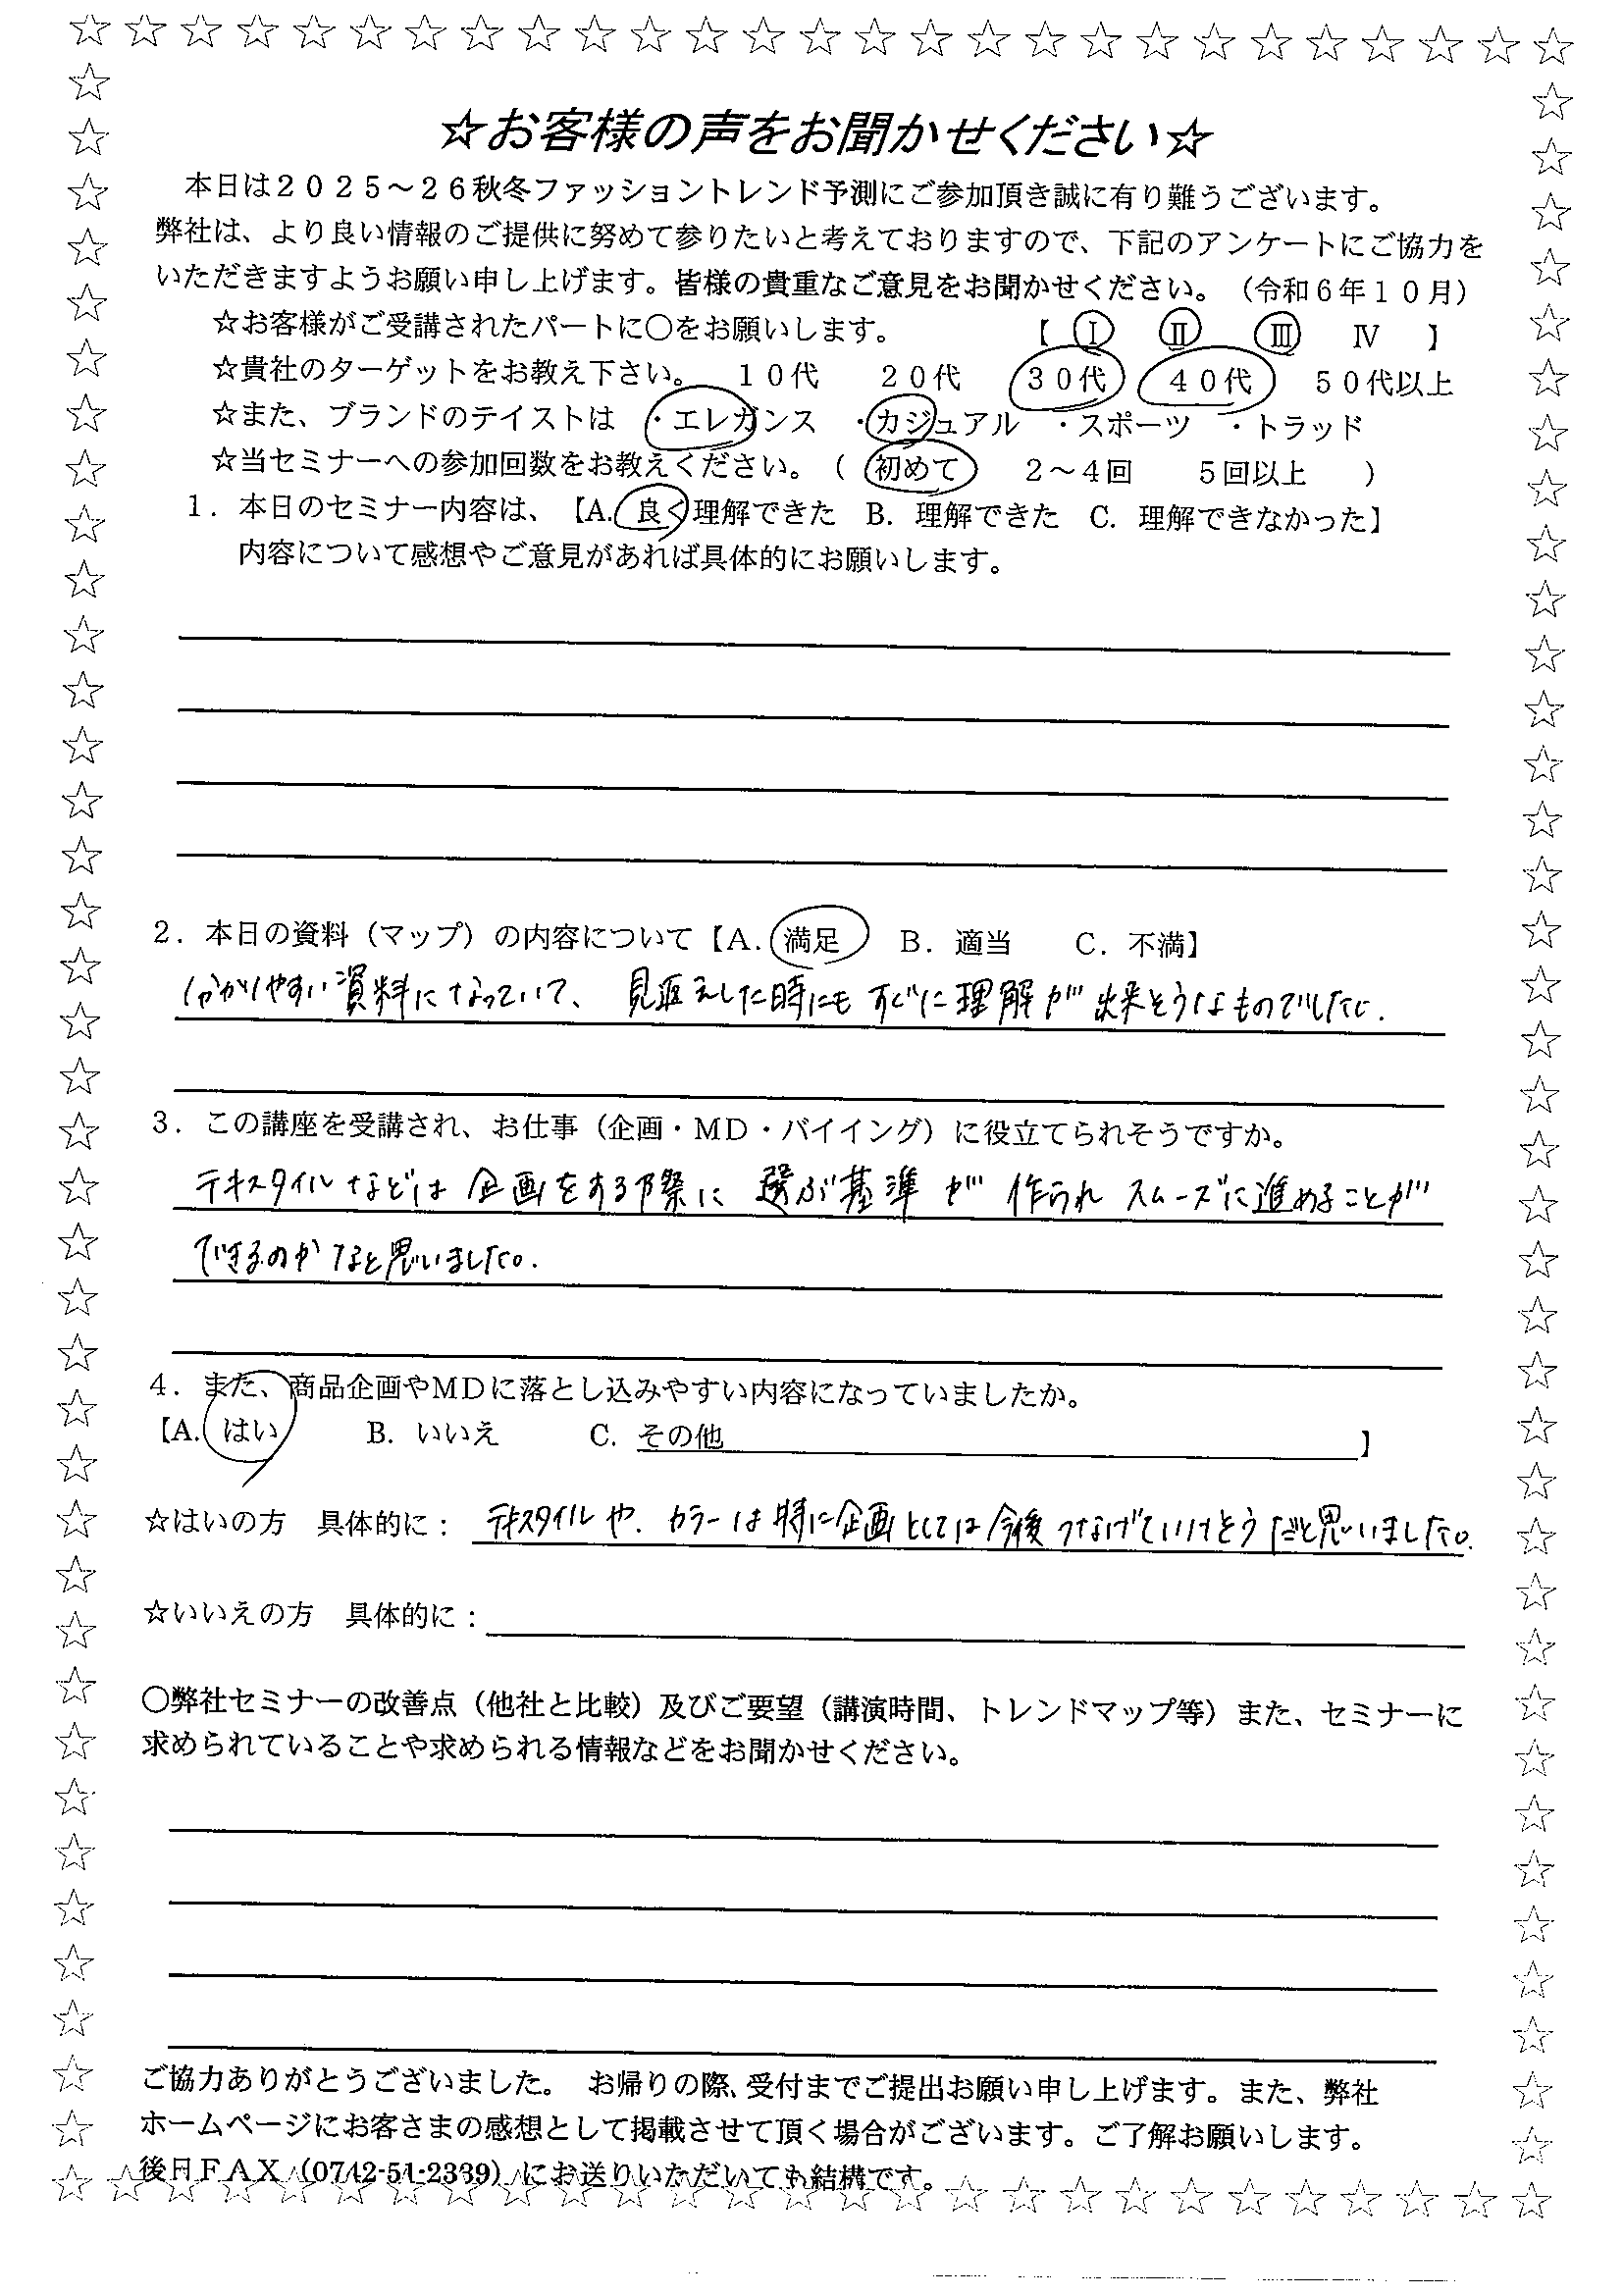 ☆お客様の声をお聞かせください☆
本日は２０２５～２６秋冬ファッショントレンド予測にご参加頂き誠に有り難うございます。
弊社は、より良い情報のご提供に努めて参りたいと考えておりますので、下記のアンケートにご協力を
いただきますようお願い申し上げます。皆様の貴重なご意見をお聞かせください。（令和６年１０月）
☆お客様がご受講されたパートに〇をお願いします。　【 Ⅰ　Ⅱ　Ⅲ　Ⅳ 】
☆貴社のターゲットをお教え下さい。　１０代　２０代　３０代　４０代　５０代以上
☆また、ブランドのテイストは　・エレガンス　・カジュアル　・スポーツ　・トラッド
☆当セミナーへの参加回数をお教えください。（　初めて　２～４回　５回以上　）
１．本日のセミナー内容は、【A. 良く理解できた　B. 理解できた　C. 理解できなかった】
内容について感想やご意見があれば具体的にお願いします。
２．本日の資料（マップ）の内容について【A. 満足　B. 適当　C. 不満】
分かりやすい資料になっていて、見返えした時にもすぐに理解が出来そうなものでした。
３．この講座を受講され、お仕事（企画・MD・バイイング）に役立てられそうですか。
テキスタイルなどは企画をする際に選ぶ基準が作られスムーズに進めることが
できるのかなと思いました。
４．また、商品企画やMDに落とし込みやすい内容になっていましたか。
【A. はい　B. いいえ　C. その他　】
☆はいの方　具体的に：テキスタイルや、カラーは特に企画としては今後つなげていけそうだと思いました。
☆いいえの方　具体的に：
〇弊社セミナーの改善点（他社と比較）及びご要望（講演時間、トレンドマップ等）また、セミナーに
求められていることや求められる情報などをお聞かせください。
ご協力ありがとうございました。　お帰りの際、受付までご提出お願い申し上げます。また、弊社
ホームページにお客さまの感想として掲載させて頂く場合がございます。ご了解お願いします。
後日ＦＡＸ（0742-51-2339）にお送りいただいても結構です。